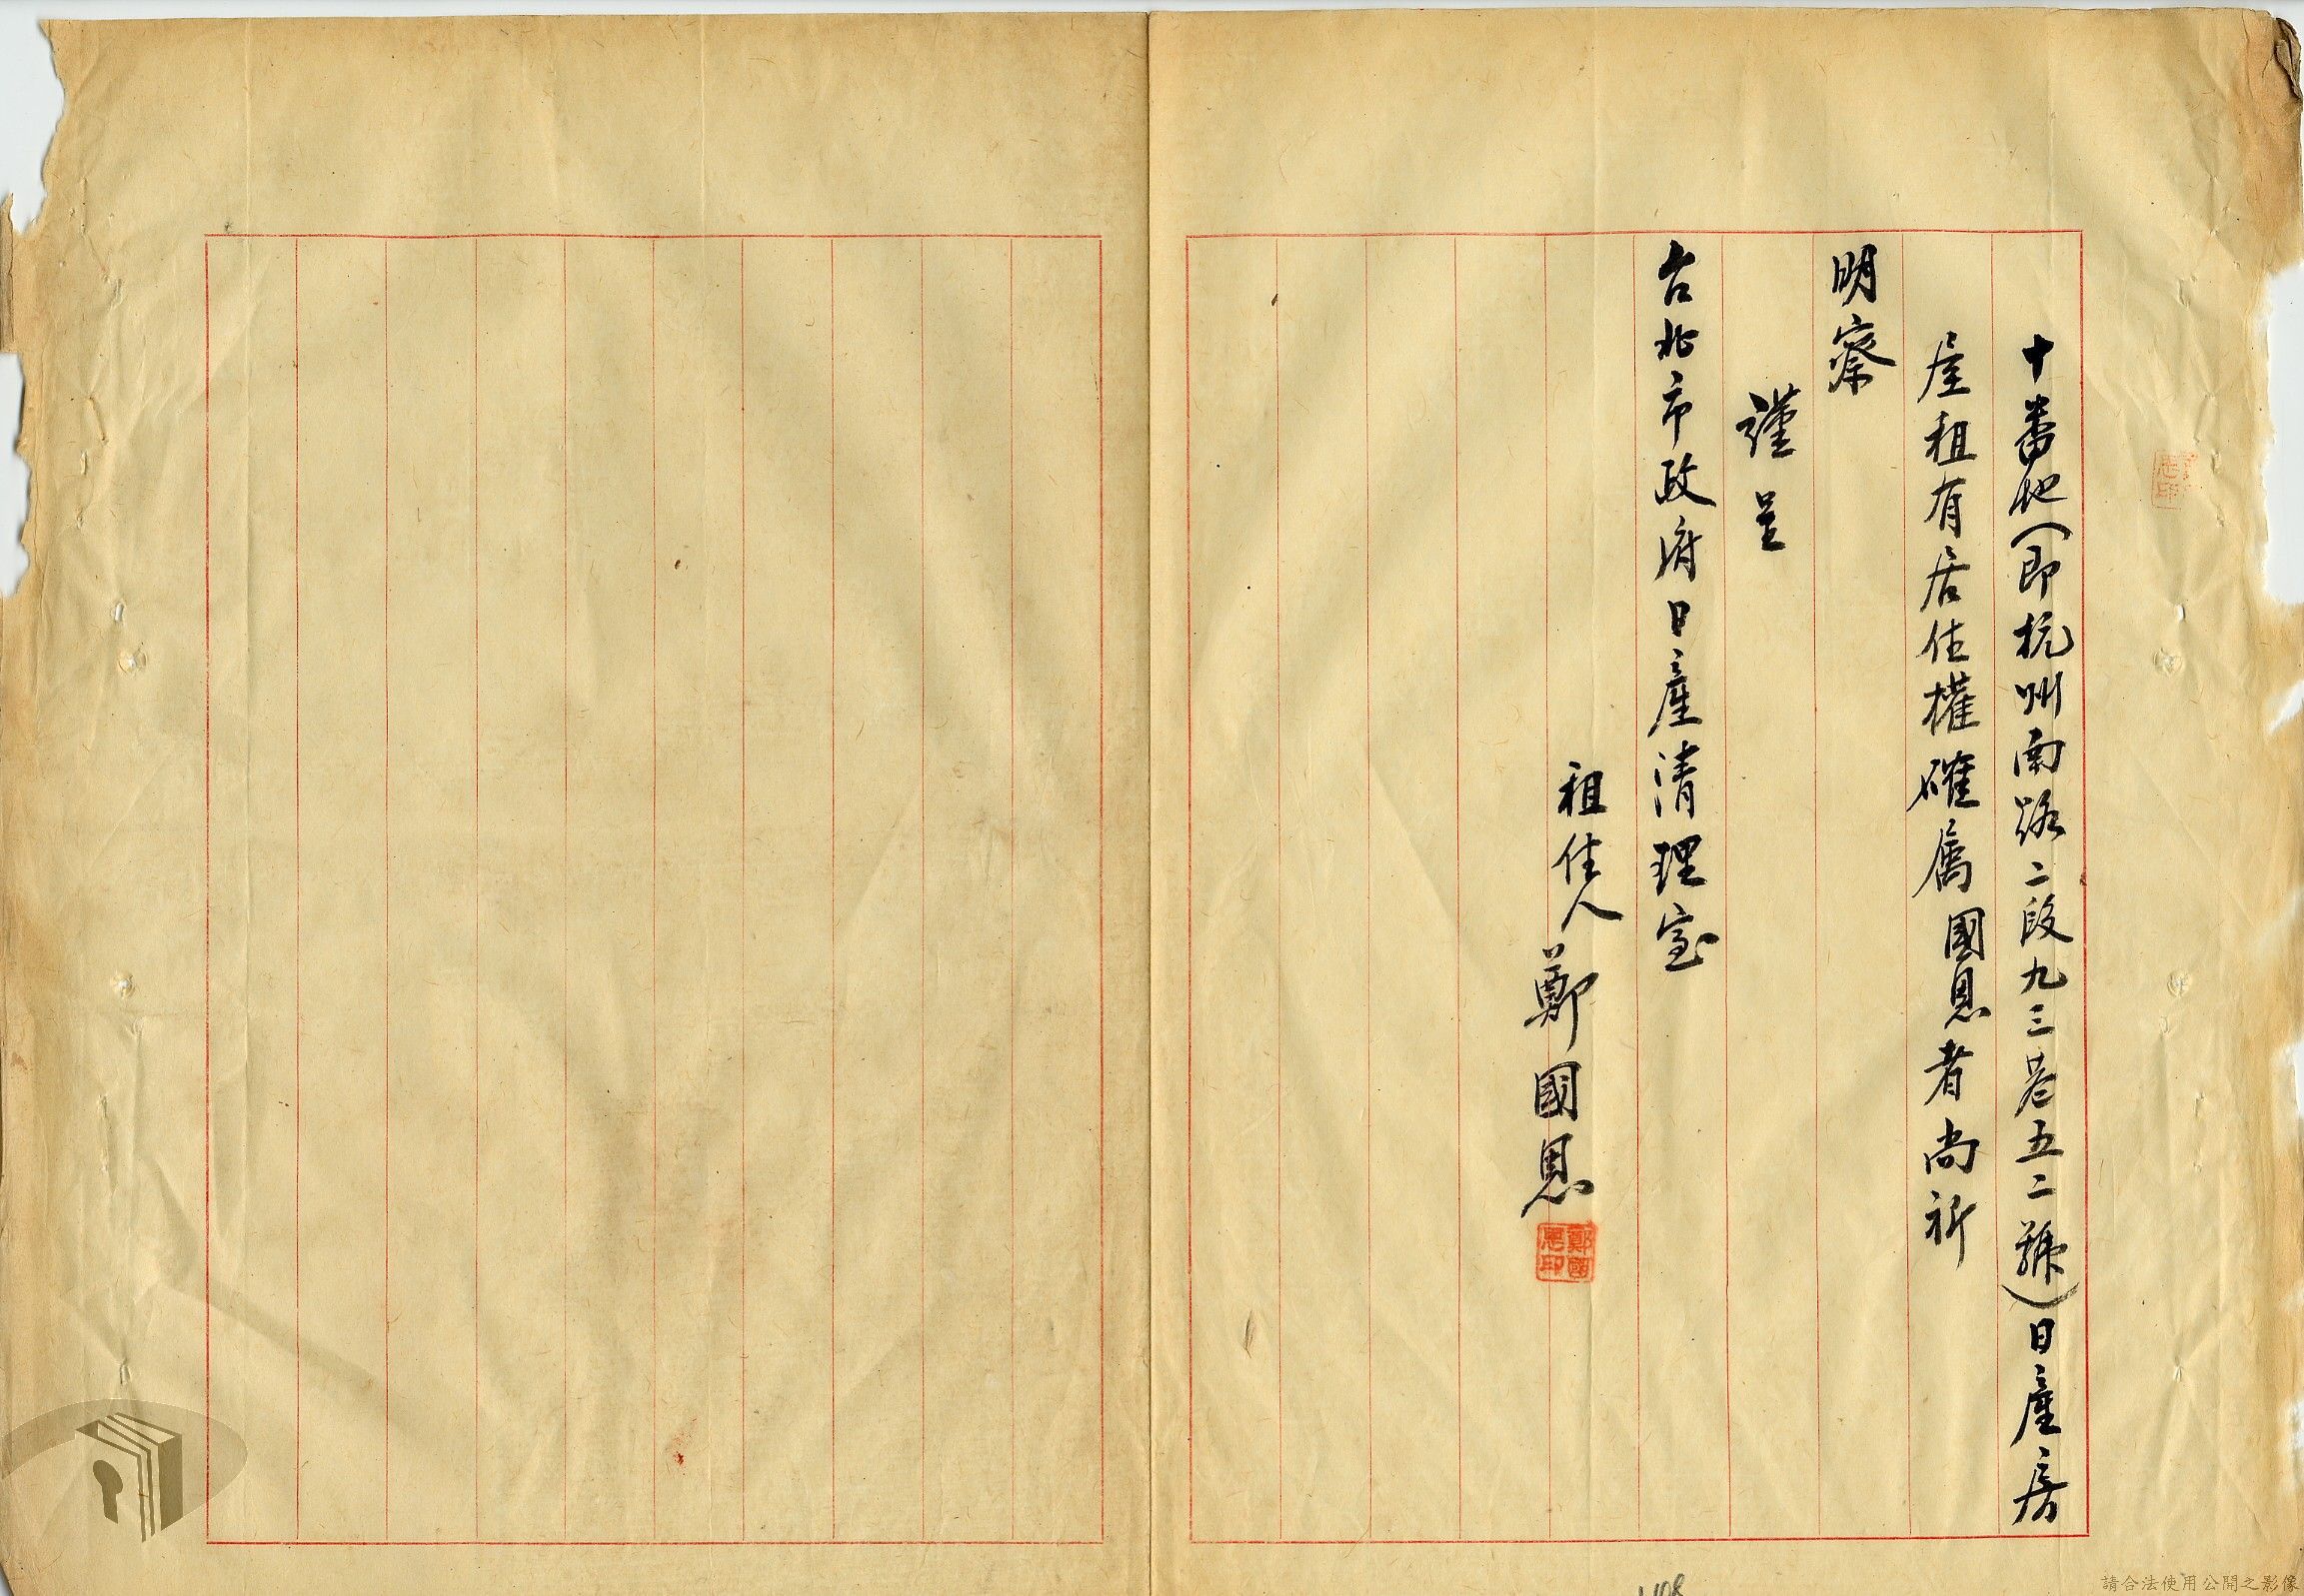 十番地(即杭州南路二段九三巷五二號)日產房
屋租有居住權確屬國恩者尚祈
明察
謹呈
台北市政府日產清理室
租住人鄭國恩
鄭國恩印
請合法使用公開之影像